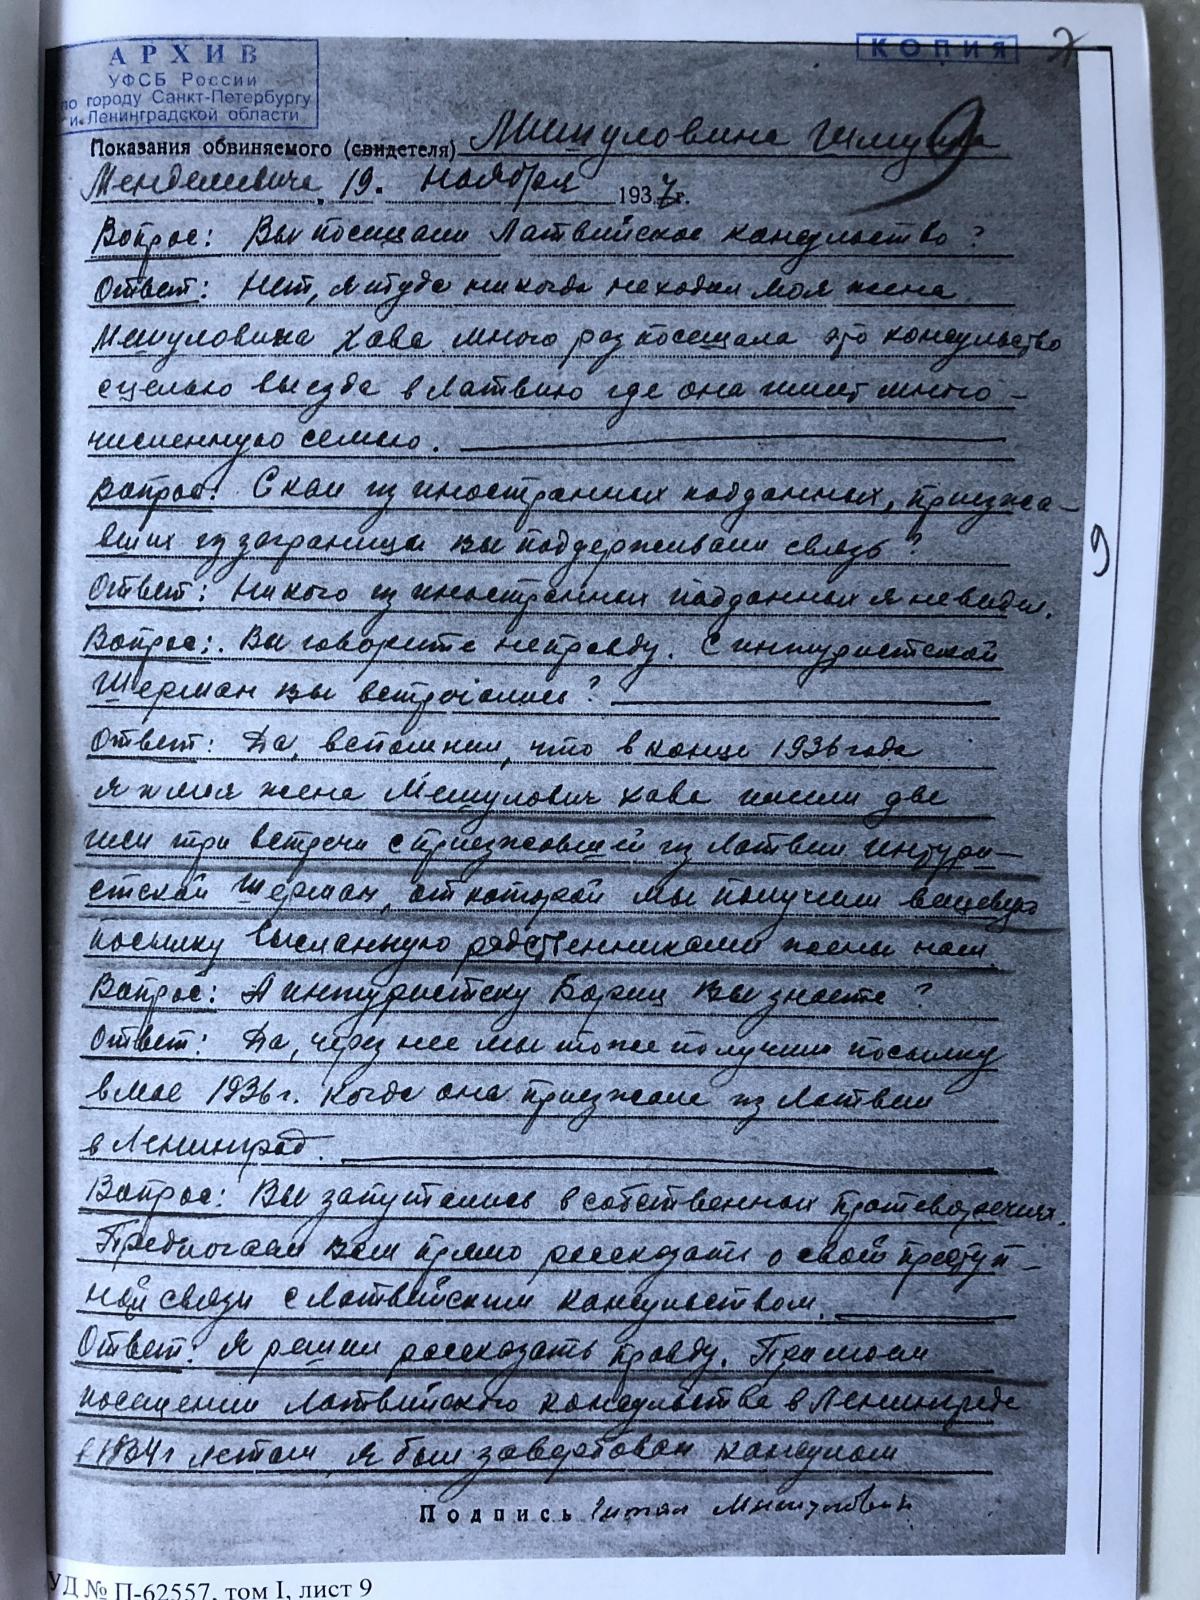 АРХИВ
УФСБ России
по городу Санкт-Петербургу
и Ленинградской области
КОПИЯ
9
Показания обвиняемого (свидетеля) Мишуловина
Менделевича 19. ноября 1937 г.
Вопрос: Вы посещали Латвийское консульство?
Ответ: Нет, я туда никогда не ходил моя жена
Мишуловина Хава много раз посещала это консульство
с целью выезда в Латвию где она имеет много-
численную семью.
Вопрос: С кем из иностранных подданных, приезжа-
вших из заграницы вы поддерживали связь?
Ответ: Никого из иностранных подданных я не видел.
Вопрос: Вы говорите неправду. С интуристской
Шерман вы встречались?
Ответ: Да, вспомнил, что в конце 1936 года
я и моя жена Мишулович Хава имели две
или три встречи с приезжавшей из Латвии интури-
стской Шерман, от которой мы получили вещевую
посылку высланную родственниками жены нам.
Вопрос: А интуристску Бориц вы знаете?
Ответ: Да, через нее мы тоже получили посылку
в мае 1936 г. когда она приезжала из Латвии
в Ленинград.
Вопрос: Вы запутались в собственных противоречиях.
Предлагаем вам прямо рассказать о своей преступ-
ной связи с Латвийским консульством.
Ответ: Я решил рассказать правду. При моем
посещении Латвийского консульства в Ленинграде
в 1934 г летом, я был завербован консулом
Подпись Мишуловин
9
УД № П-62557, том I, лист 9